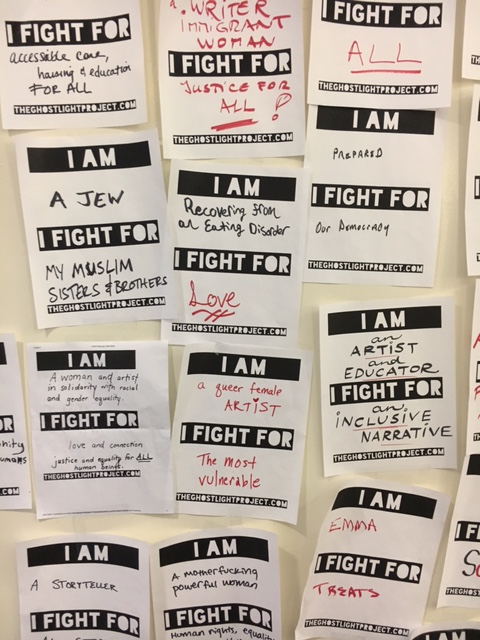 I FIGHT FOR
accessible care,
housing & education
FOR ALL
THEGHOSTLIGHTPROJECT.COM
a. WRITER
IMMIGRANT
WOMAN
I FIGHT FOR
JUSTICE FOR
ALL!
THEGHOSTLIGHTPROJECT.COM
I FIGHT FOR
ALL
THEGHOSTLIGHTPROJECT.COM
I AM
A JEW
I FIGHT FOR
MY MUSLIM
SISTERS & BROTHERS
THEGHOSTLIGHTPROJECT.COM
I AM
Recovering from
an Eating Disorder
I FIGHT FOR
Love
THEGHOSTLIGHTPROJECT.COM
I AM
PREPARED
I FIGHT FOR
Our Democracy
THEGHOSTLIGHTPROJECT.COM
I AM
A woman and artist
in solidarity with racial
and gender equality.
I FIGHT FOR
love and connection
justice and equality for ALL
human beings.
THEGHOSTLIGHTPROJECT.COM
I AM
a queer female
ARTIST
I FIGHT FOR
The most
vulnerable
THEGHOSTLIGHTPROJECT.COM
I AM
an
ARTIST
and
EDUCATOR
I FIGHT FOR
an
INCLUSIVE
NARRATIVE
THEGHOSTLIGHTPROJECT.COM
I AM
A STORYTELLER
I FIGHT FOR
I AM
A motherfucking
powerful woman
I FIGHT FOR
Human rights, equality
I AM
EMMA
I FIGHT FOR
TREATS
THEGHOSTLIGHTPROJECT.COM